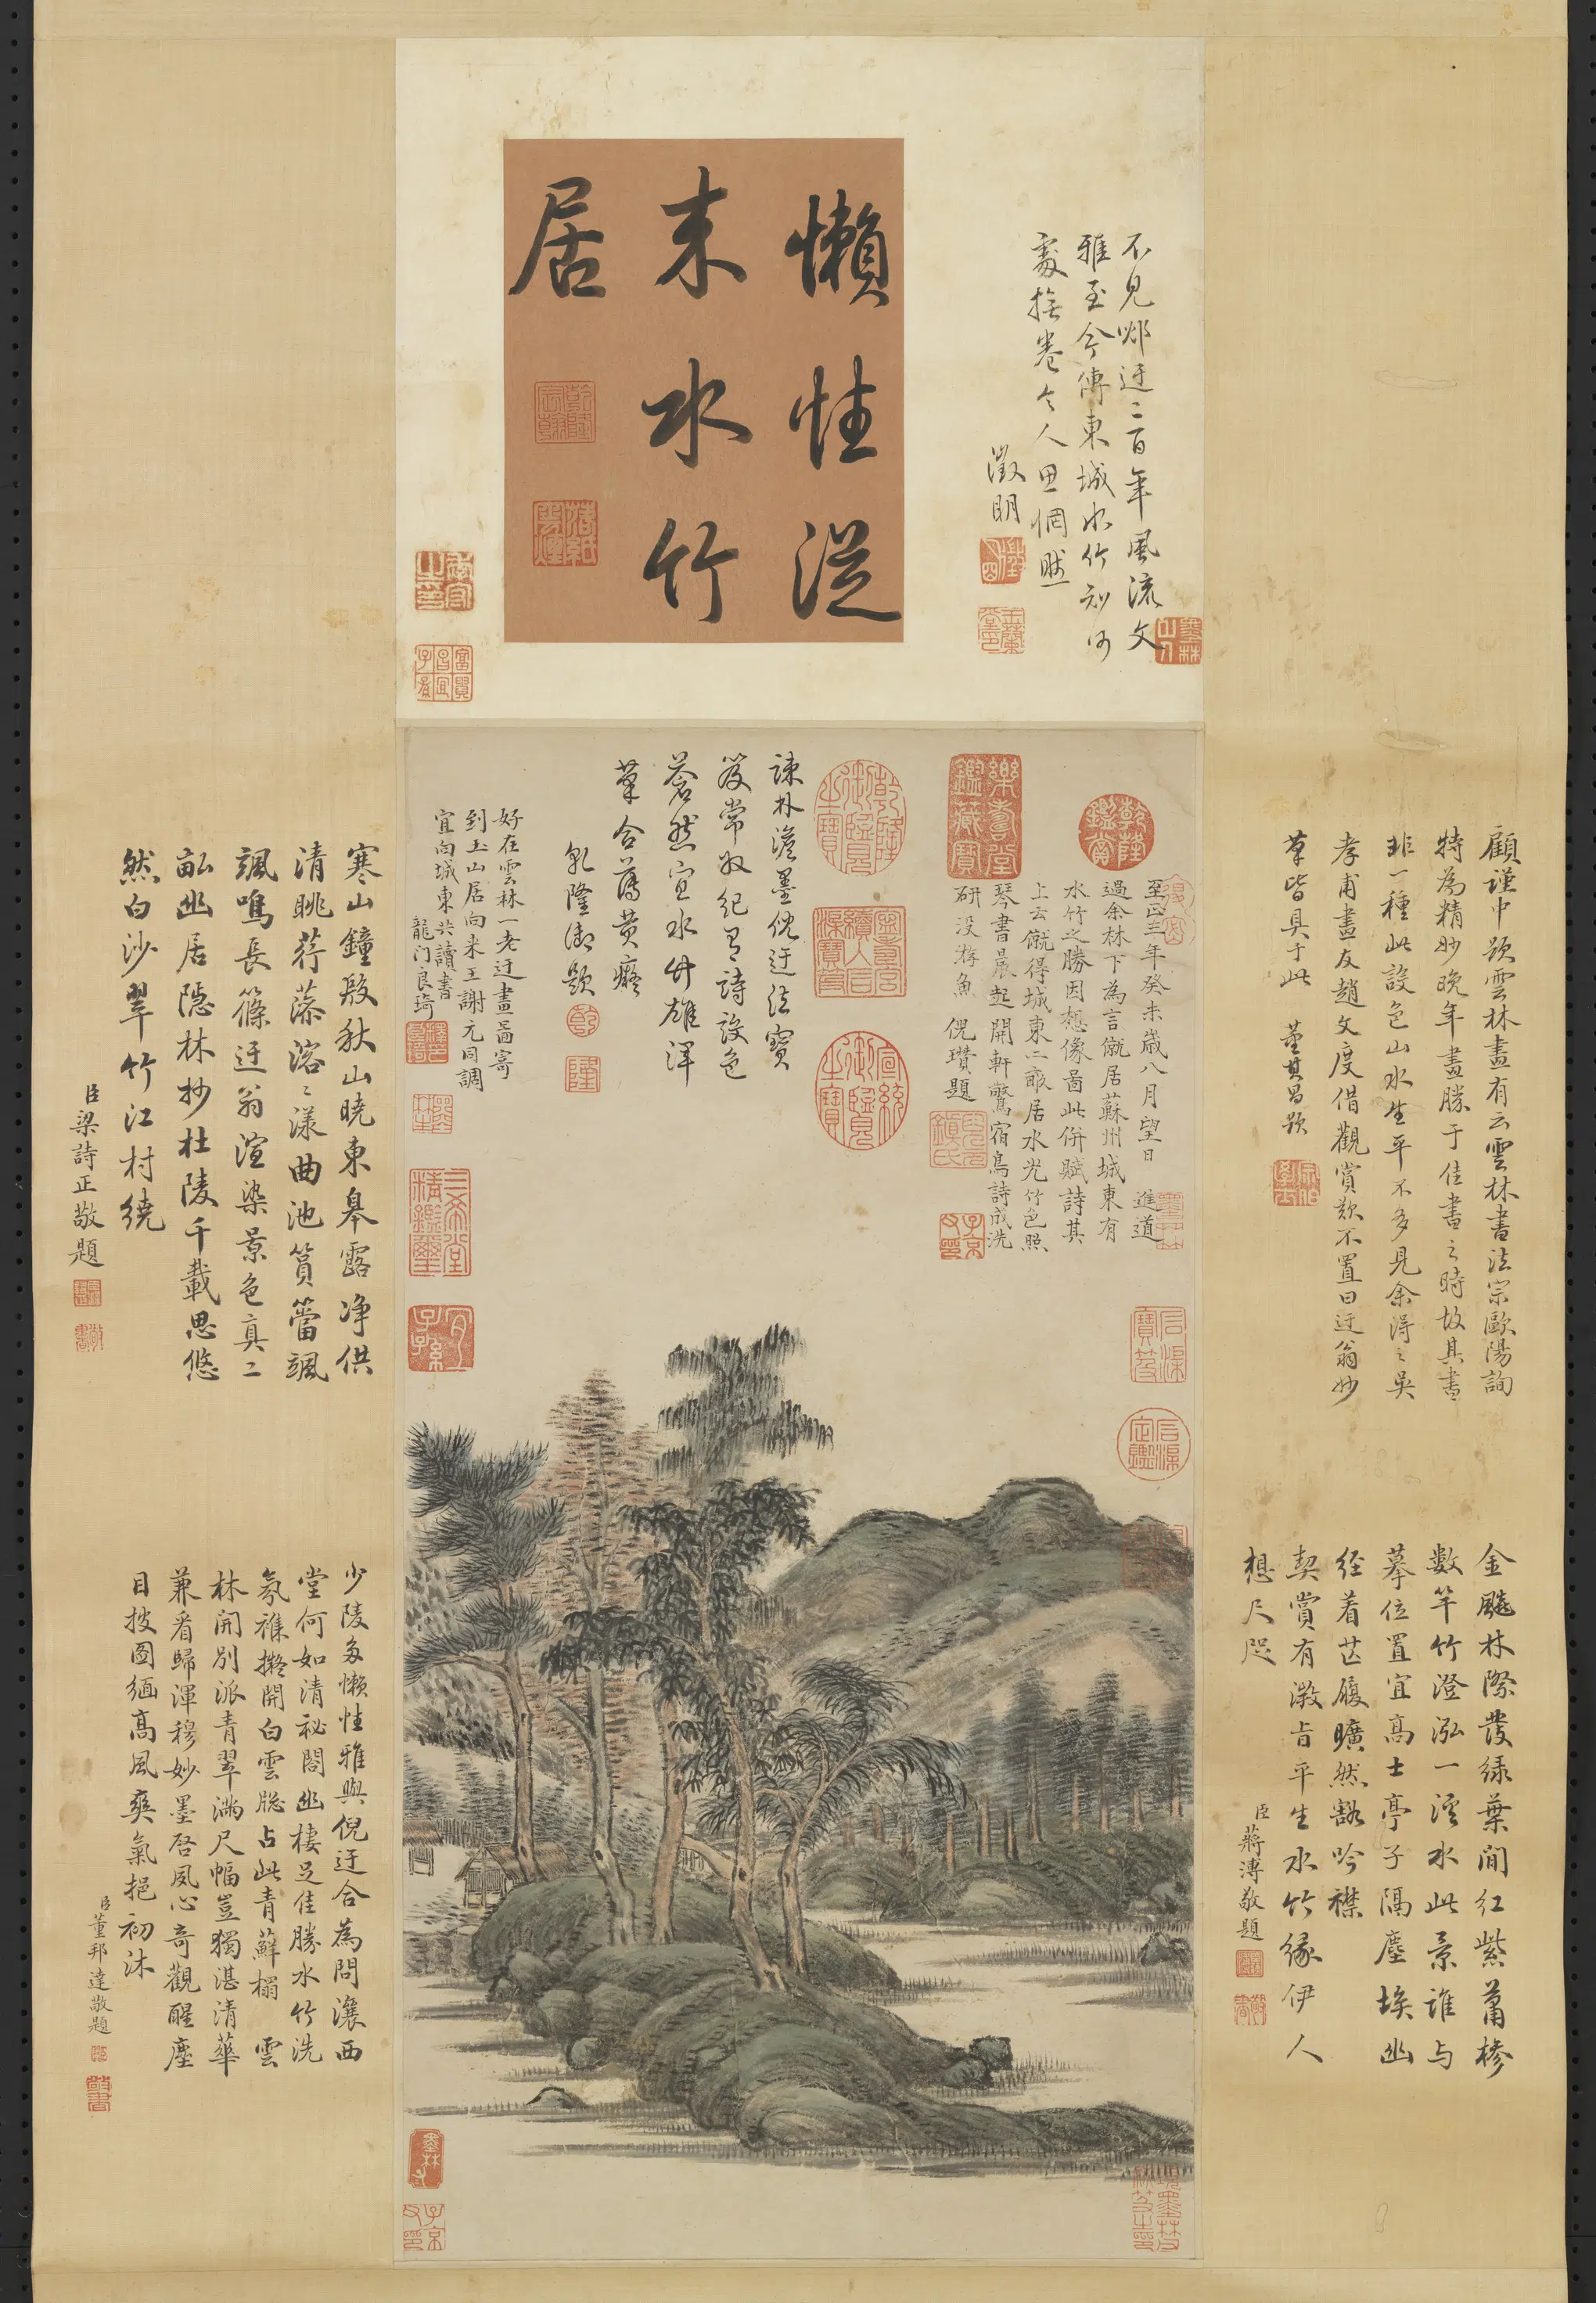 懶性從
来水竹
居
不見郳迂二百年風流文
雅至今傳東城水竹知何
處撫卷令人思惘然
徵明
至正三年癸未歲八月望日進道
過余林下為言僦居蘇州城東有
水竹之勝因想像畵此併賦詩其
上云僦得城東二畝居水光竹色照
琴書晨起開軒驚宿鳥詩成洗
研没游魚 倪瓚題
疎林澹墨倪迂法寶
笈常收紀有詩設色
蒼然宜水竹雄渾
筆合薦黄癡
乾隆御題
好在雲林一老迂畫畵寄
到玉山居向来王謝元同調
宜向城東共讀書
龍门良琦
顧謹中題雲林畫有云雲林書法宗歐陽詢
特為精妙晚年畫勝于佳書之時故其畫
非一種此設色山水生平不多見余得之吳
孝甫畫友趙文度借觀賞歎不置曰迂翁妙
筆皆具于此 董其昌題
金飈林際發綠葉間紅紫蕭椮
數竿竹澄泓一溪水此景誰与
摹位置宜高士亭子隔塵埃幽
径着芒履曠然豁吟襟
契賞有微旨平生水竹緣伊人
想尺咫
臣蔣溥敬題
寒山鐘殷秋山曉東皋露净供
清眺荇藻溶溶漾曲池篔簹颯
颯鳴長篠迂翁渲染景色真二
畝幽居隱林抄杜陵千載思悠
然白沙翠竹江村繞
臣梁詩正敬題
少陵多懶性雅與倪迂合為問瀼西
堂何如清祕閣幽棲足佳勝水竹洗
氛雜擬開白雲牕占此青蘚榻 雲
林開別派青翠滿尺幅豈獨湛清華
兼看歸渾穆妙墨啓夙心奇觀醒塵
目披圖緬高風爽氣挹初沐
臣董邦達敬題